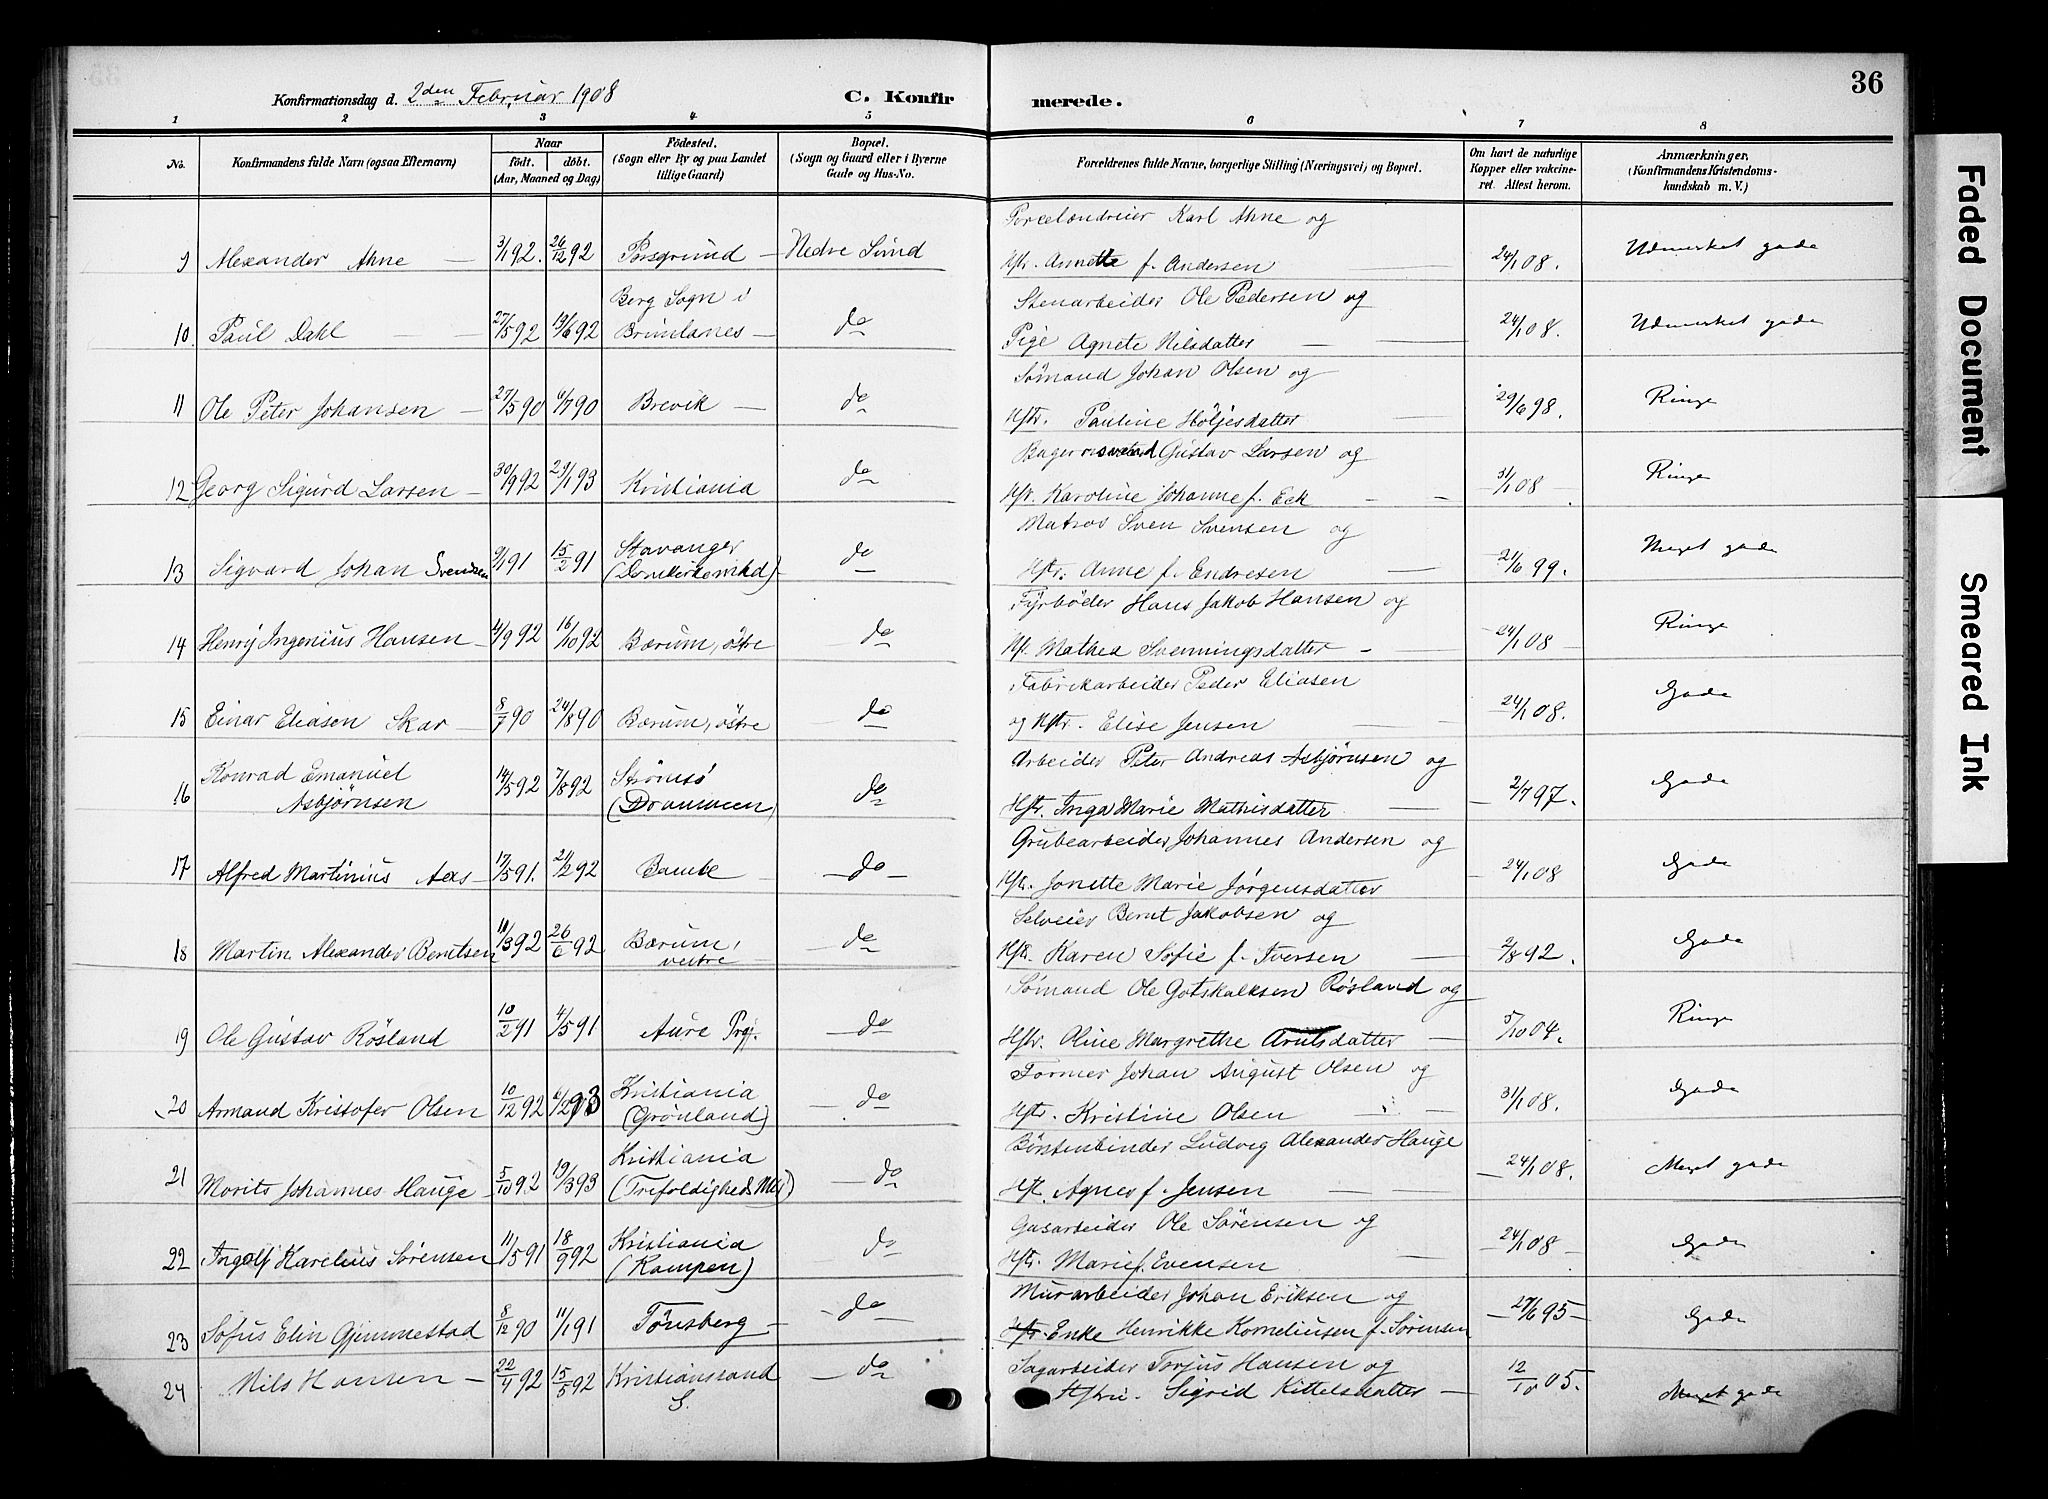 36
Konfirmationsdag d. 2den Februar 1908 C. Konfirmerede.
1 2 3 4 5 6 7 8
No. Konfirmandens fulde Navn (ogsaa Efternavn) Naar født. døbt. (Aar, Maaned og Dag) Fødested. (Sogn eller By og paa Landet tillige Gaard) Bopæl. (Sogn og Gaard eller i Byerne Gade og Hus-No. Forældrenes fulde Navne, borgerlige Stilling (Næringsvei) og Bopæl. Om havt de naturlige Kopper eller vakcineret. Attest herom. Anmærkninger, (Konfirmandens Kristendomskundskab m. V.)
Porcelændreier Karl Ahne og
9 Alexander Ahne 3/1 92. 26/12 92 Porsgrund Nedre Sund Hstr. Annette f. Andersen 24/1 08. Udmerket gode
Berg Sogn i Stenarbeider Ole Pedersen og
10. Paul Dahl 27/5 92 19/6 92 Brunlanes do Pige Agnete Nilsdatter 24/1 08. Udmerket gode
Sömand Johan Olsen og
11 Ole Peter Johansen 27/5 90 6/7 90 Brevik do Hstr. Pauline Höljesdatter 29/6 98. Ringe
Bagersvend Gustav Larsen og
12 Georg Sigurd Larsen 30/9 92 29/1 93 Kristiania do Hst. Karoline Johanne f. Eck 31/1 08 Ringe
Matros Sven Svensen og
13 Sigvard Johan Svendsen 9/1 91 15/2 91 Stavanger (Domkirkemhd) do Hstr. Anne f. Endresen 21/6 99. Meget gode
Fyrböder Hans Jakob Hansen og
14 Henry Ingenius Hansen 4/9 92 16/10 92 Bærum, östre do Hst. Mathea Svenningsdatter 24/1 08 Ringe
Fabrikarbeider Peder Eliasen
15 Einar Eliasen Skar 8/7 90 24/8 90 Bærum, östre do og Hstr. Elise Jensen 24/1 08. Gode
Arbeider Peter Andreas Asbjørnsen og
16 Konrad Emanuel Asbjørnsen 14/5 92 7/8 92 Strømsö (Drammen) do Hstr. Inga Marie Mathisdatter 2/7 97. Gode
Grubearbeider Johannes Andersen og
17 Alfred Martinius Aas 17/5 91. 21/2 92 Bamle do Hstr. Jonette Marie Jørgensdatter 24/1 08 Gode
Selveier Bernt Jakobsen og
18 Martin Alexander Berntsen 11/3 92 26/6 92 Bærum, vestre do Hstr. Karen Sofie f. Iversen 2/8 92. Gode
Sømand Ole Gotskalksen Røsland og
19 Ole Gustav Røsland 10/2 91 4/5 91 Aure Prgj. do Hstr. Oline Margrethe Arntsdatter 5/10 04. Ringe
Former Johan August Olsen og
20 Armand Kristofer Olsen 10/12 92 6/2 93 Kristiania (Grønland) do Hstr. Kristine Olsen 31/1 08. Gode
Børstenbinder Ludvig Alexander Hauge
21 Morits Johannes Hauge 5/10 92 19/3 93 Kristiania (Trefoldigheds Mg) do Hst. Agnes f. Jensen 24/1 08. Meget gode
Gasarbeider Ole Sørensen og
22 Ingolf Karelius Sørensen 11/5 91 18/9 92 Kristiania (Kampen) do Hstr. Marie f. Evensen 24/1 08 Gode
Murarbeider Johan Eriksen og
23 Sofus Elin Gjemmestad 8/12 90 11/1 91 Tönsberg do Hstr. Enke Henrikke Korneliusen f. Sørensen 27/6 95 Gode
Sagarbeider Torjus Hansen og
24 Nils Hansen 22/4 92 15/5 92 Kristianssand S. do Hstru. Sigrid Kittelsdatter 12/10 05. Meget gode
Faded Document
Smeared Ink